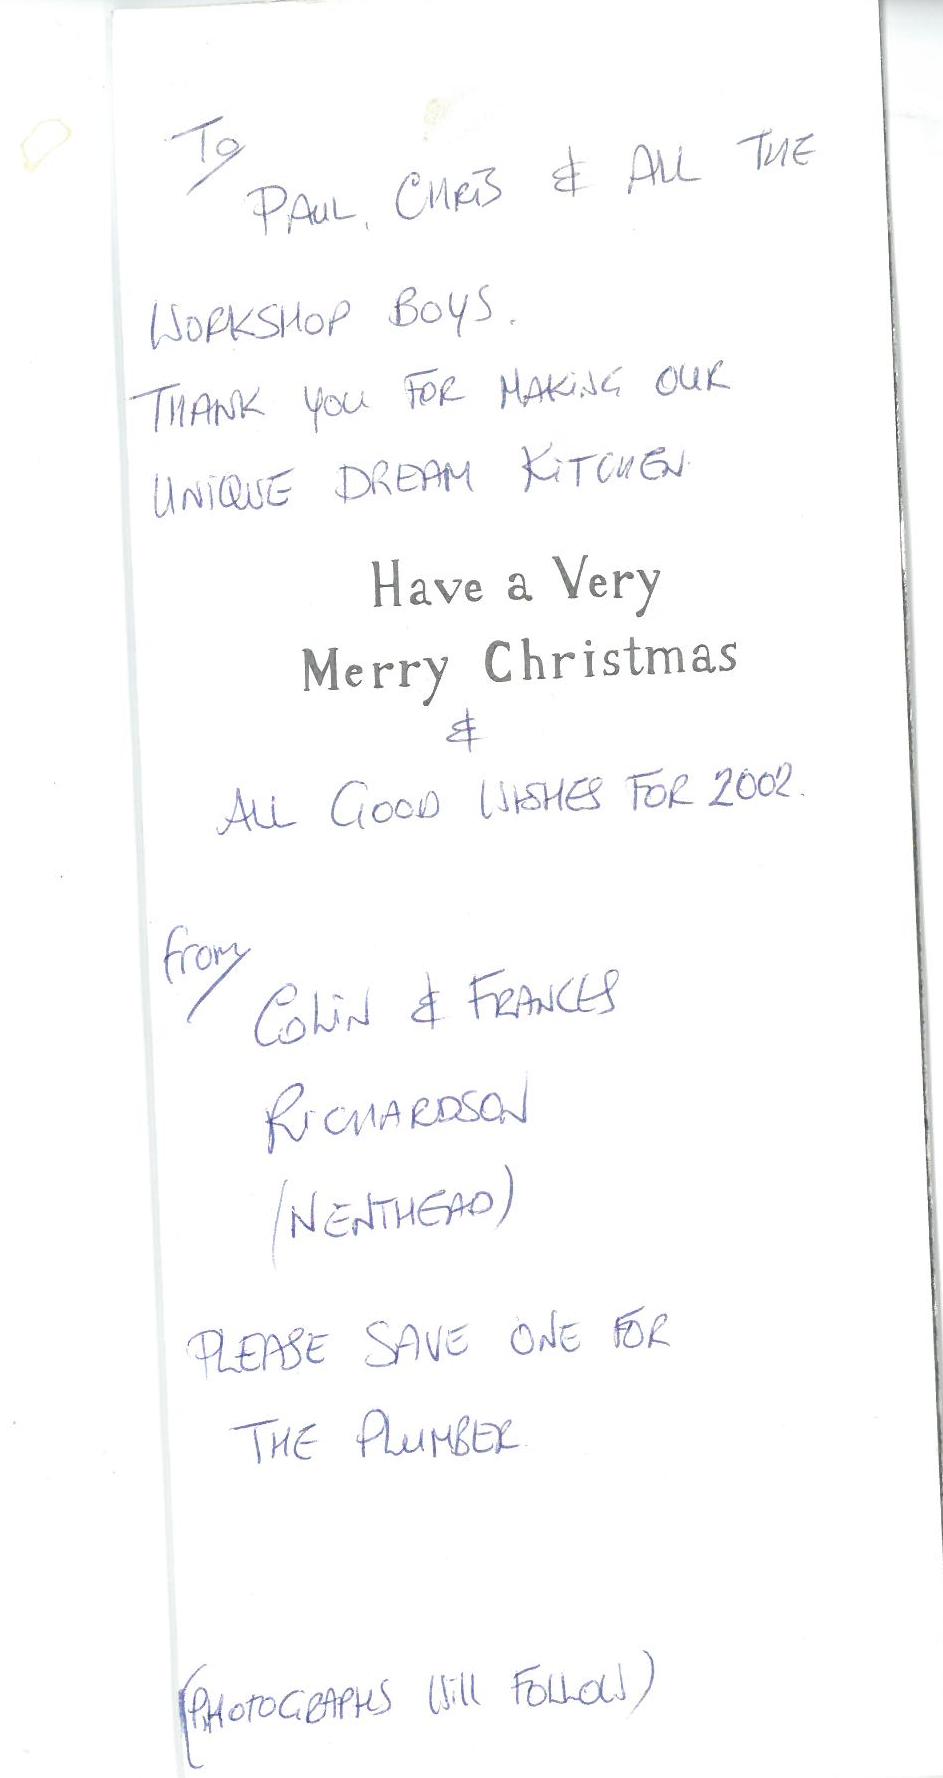 To
PAUL, CHRIS & ALL THE
WORKSHOP BOYS.
THANK YOU FOR MAKING OUR
UNIQUE DREAM KITCHEN
Have a Very
Merry Christmas
&
ALL GOOD WISHES FOR 2002.
from
COLIN & FRANCES
RICHARDSON
(NENTHEAD)
PLEASE SAVE ONE FOR
THE PLUMBER
(PHOTOGRAPHS Will FOLLOW)